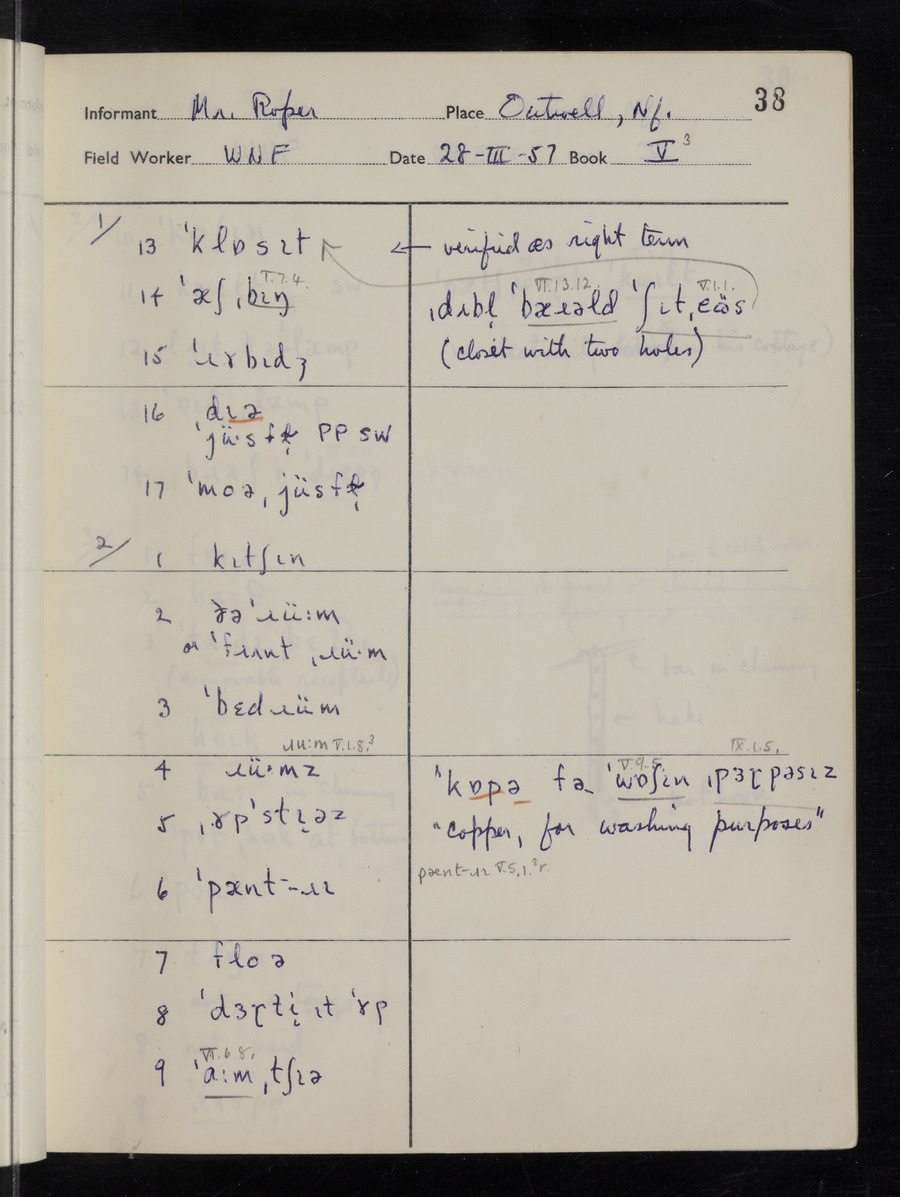 38
Informant Mr. Roper Place Outwell, Nf.
Field Worker WNF Date 28-III-57 Book V³
1/ 13 ˈklɒsɪt ← verified as right term
14 ˈæʃˌbɪŋ V.7.4. ˌdɪbl̩ ˈbæɹəld ˈʃɪtˌɛɷ̈s VI.13.12. V.1.1.
15 ˈɹɤbɪdʒ (closet with two holes)
16 ˈdɪə
ˈjüˑstt̨ PP SW
17 ˈmoə, jüstt̨
2/ 1 kɪtʃɪn
2 ðəˈɹüːm
or ˈfɹɤntˌɹüˑm
3 ˈbɛdɹüm
ɹuːm V.1.8,³ IX.1.5,
4 ɹüˑmz "ˈkɒpə fə ˈwɒʃɪn ˌpɜɽpəsɪz V.9.5.
5 ˌɤpˈstɪ̞əz "copper, for washing purposes"
6 ˈpænt-ɹɪ pænt-ɹɪ V.5.1.³r.
7 floə
8 ˈdɜɽtɪ̞ ɪt ˈɤp
VI.6.8,
9 ˈaːmˌtʃɪə